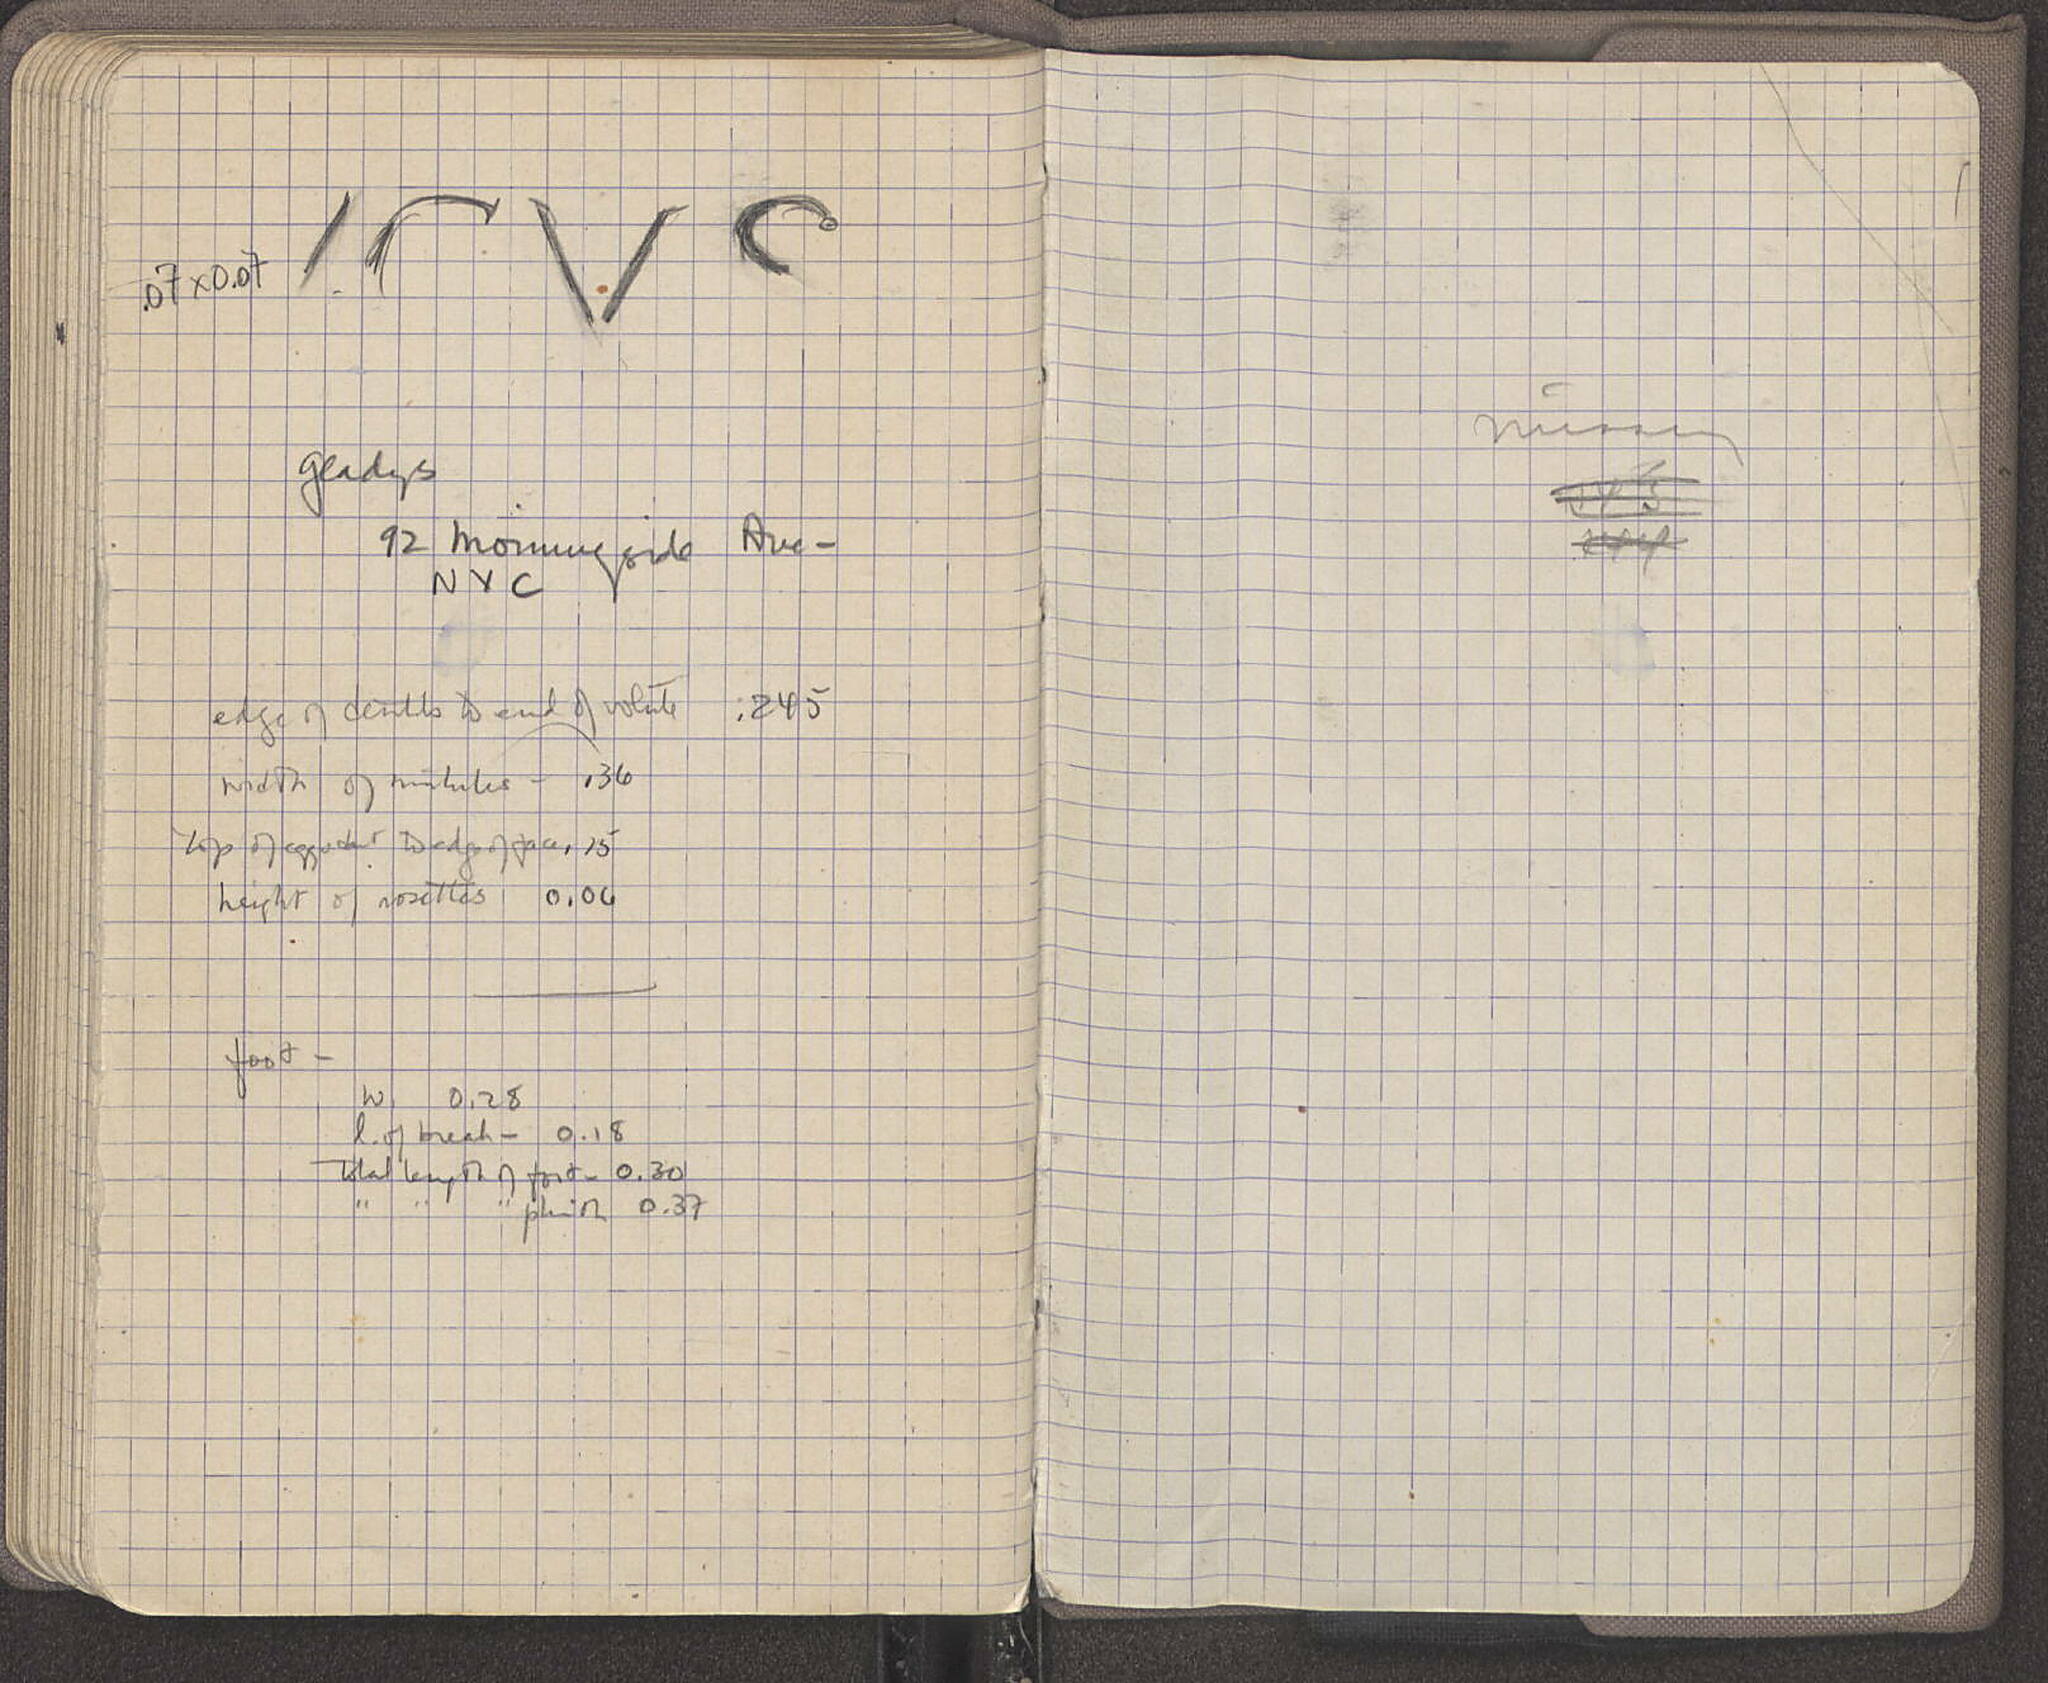 .07 x 0.07
Gladys
92 Morningside Ave -
NYC
edge of dentils to end of volute .245
width of mutules - .36
top of egg & dart to edge of face .15
height of rosettes 0.06
foot -
w. 0.28
l. of break - 0.18
Total length of foot - 0.30
" " " plinth 0.37
missing